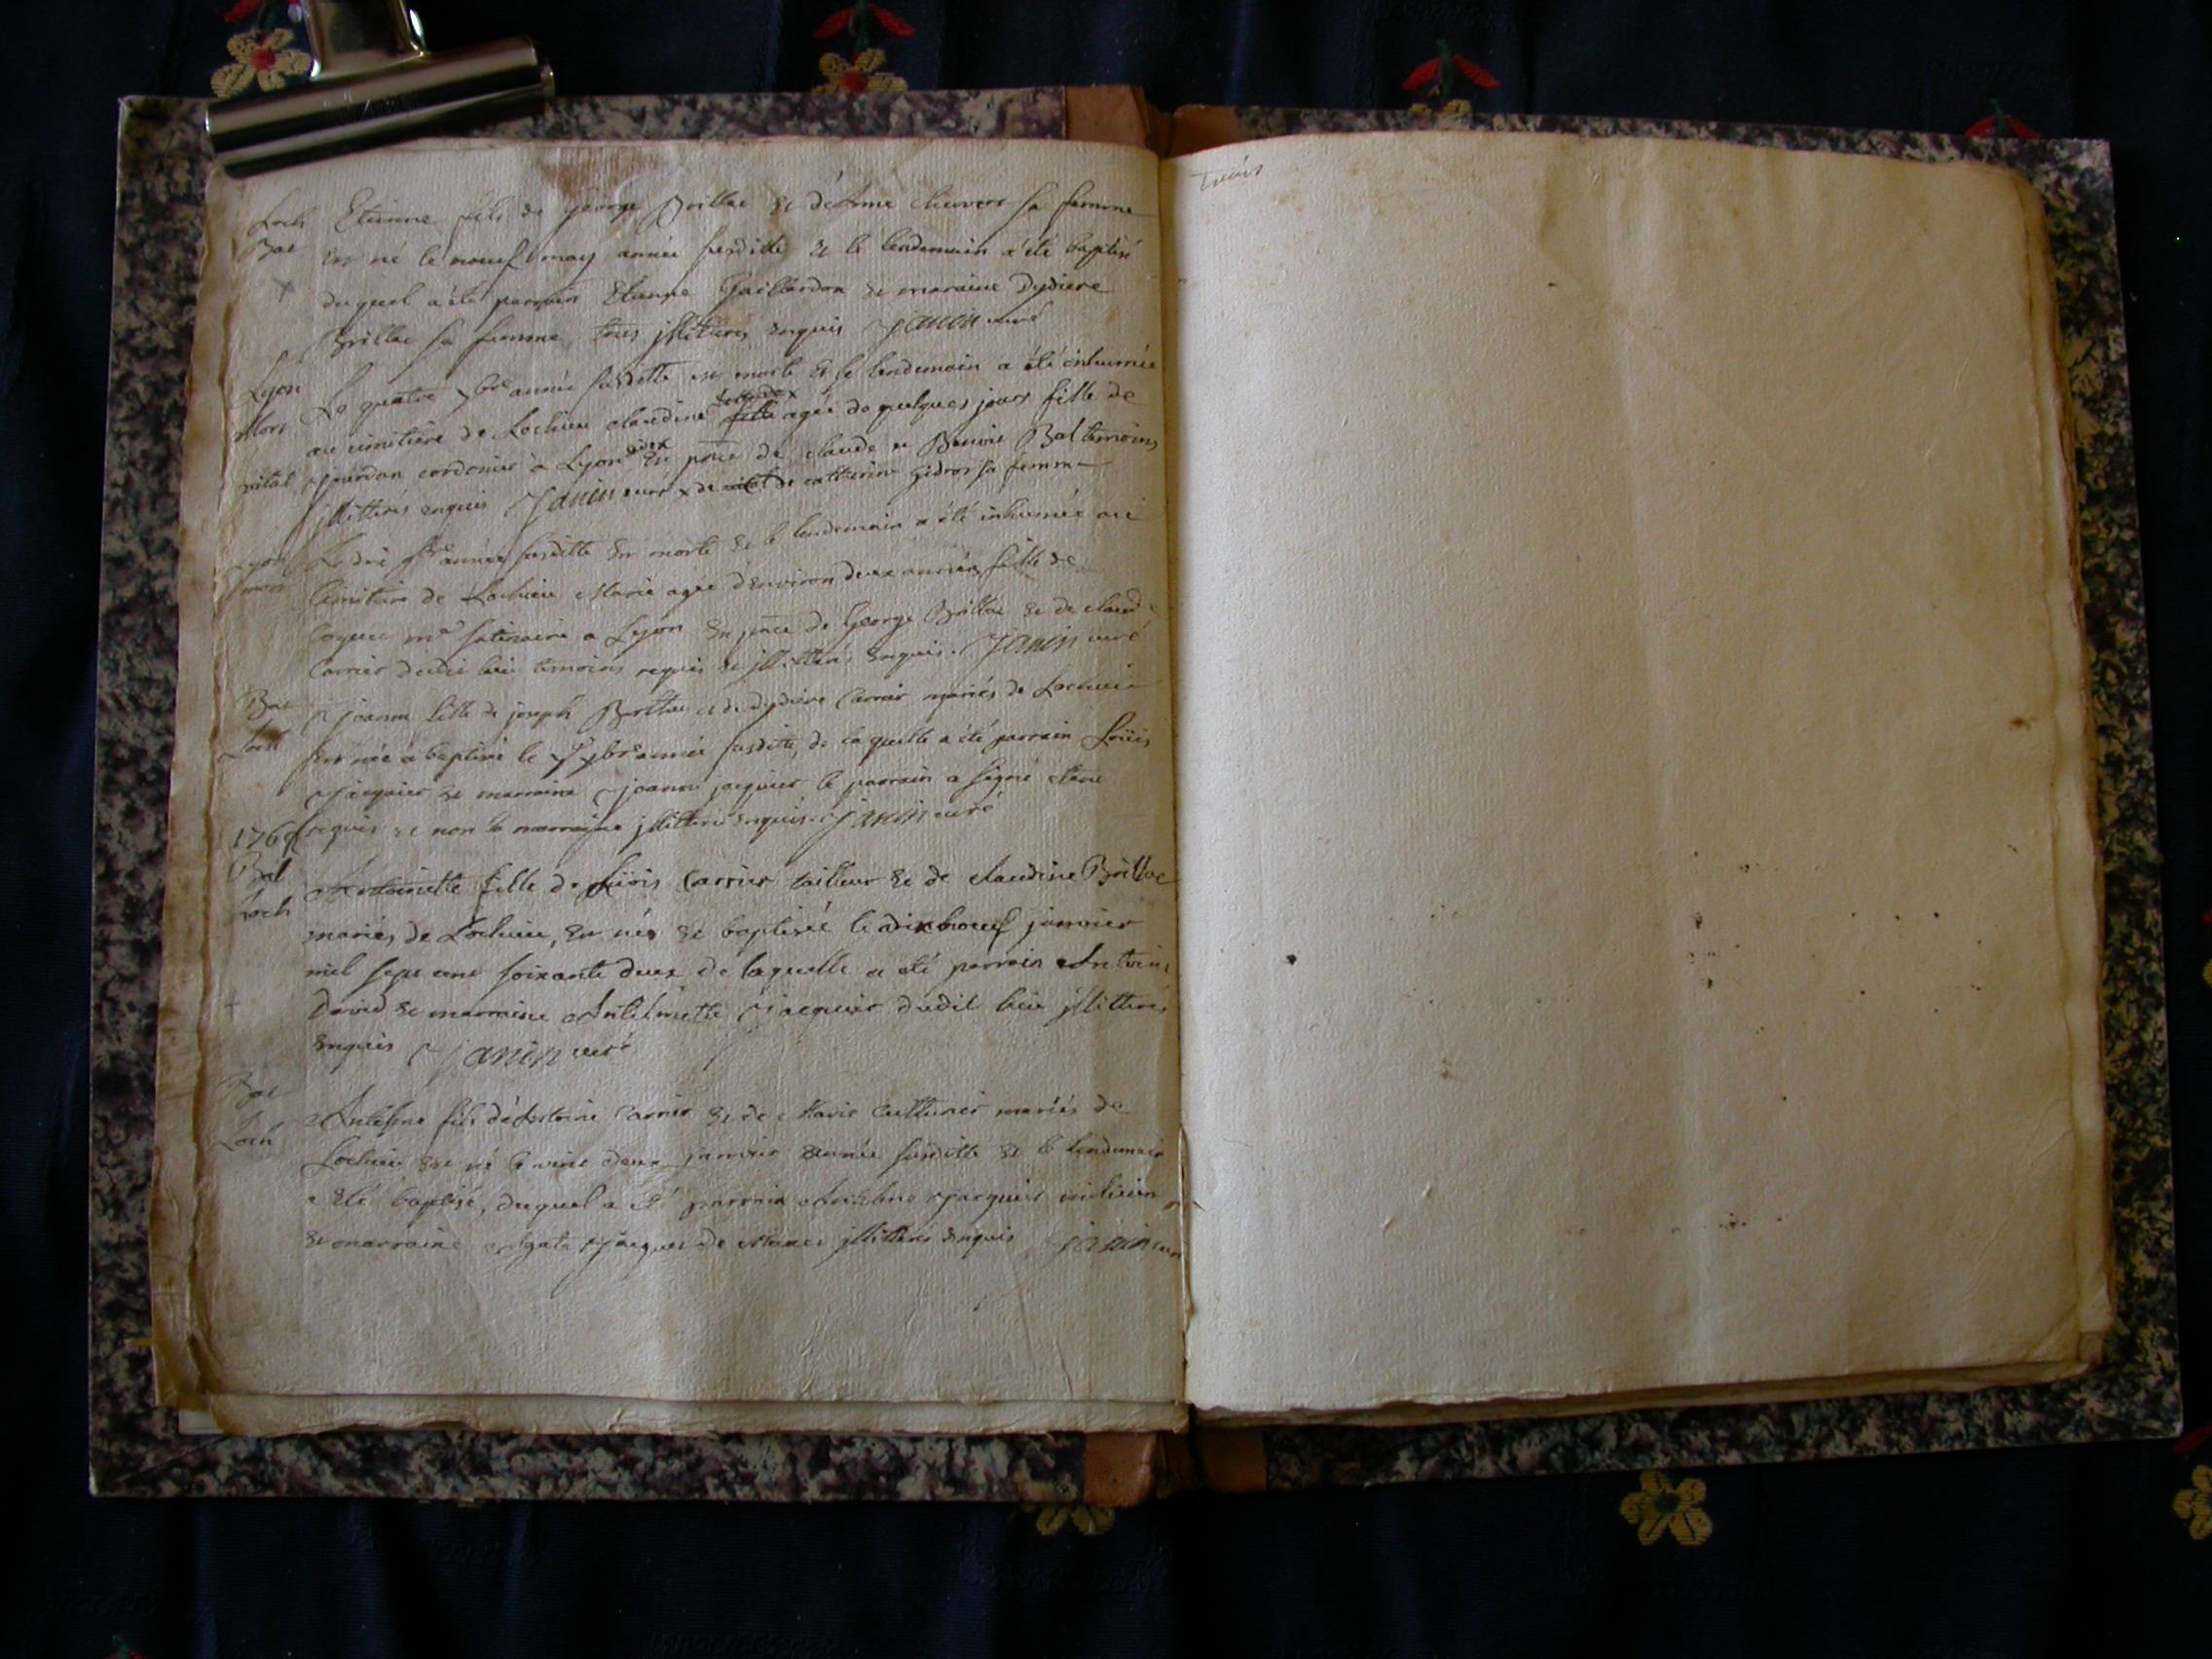 Loch Etienne fils de george Brillat et d'Anne chervers sa femme
Bat est né le neuf may année susditte et le lendemain a été baptisé
duquel a été parrain Etienne Gaillardon et maraine Dydiere
Brillat sa femme tous jllitteres enquis Janin curé
Lyon Le quatre xbre année susditte est morte et le lendemain a été inhumée
Mort au cimitiere de Lochieu claudine agée de quelques jours fille de
jourdan cordonier à Lyon en pnce de claude et Benoit Bal temoins
jllitterés enquis Janin curé x de de catherine gidros sa femme
Lyon Le dix année susditte est morte et le lendemain a été inhumée au
mort cimitiere de Lochieu Marie agée d'environ deux années fille de
md satinaire a Lyon en pnce de George Brillat et de claude
Carrier dudit lieu temoins requis et jllitterés enquis. Janin curé
Bat joanne fille de joseph Berthet et de dydiere Carrier mariés de Lochieu
Loch est née et baptisée le xbre année susditte, de laquelle a été parrain Loüis
Jacquier et marraine joanne jacquier le parrain a signé
1762 requis et non la marraine jllitteré enquis. Janin curé
Bat Antoinette fille de Loüis Carrier tailleur et de claudine Brillat
Loch mariés de Lochieu, est née et baptisée le dix neuf janvier
mil sept cent soixante deux de laquelle a été parrain Antoine
David et marraine Antelmette Jacquier dudit lieu jllitterés
enquis Janin curé
Bat Antelme fils d'Antoine Carrier et de Marie Cutturier mariés de
Loch Lochieu est né le vint deux janvier année susditte et le lendemain
a été baptisé, duquel a été parrain Anthelme Jacquier
et marraine Agate Jacquier de jllitterés enquis Janin curé